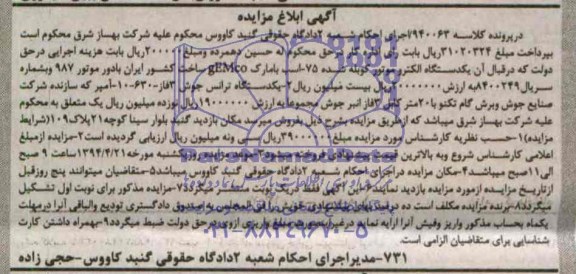 آگهی ابلاغ مزایده
درپرونده کلاسه ۹۴۰۰۶۳/اجرای احکام شعبه ۲دادگاه حقوقی گنبد کاووس محکوم علیه شرکت بهساز شرق محکوم است
بپرداخت مبلغ ۳۱۰۲۰۳۲۴ریال بابت رای اداره کار درحق محکوم له حسین دهمرده ومبلغ ۲۰۰۰۰۰۰ریال بابت هزینه اجرایی درحق
دولت که درقبال آن یکدستگاه الکتروموتور کوپله شده ۷۵-اسب بامارک gEMco ساخت کشور ایران بادور موتور ۹۸۷ وبشماره
سریال ۸۴۰۰۲۴۹به ارزش ۲۰۰۰۰۰۰۰ریال بیست میلیون ریال۲-یکدستگاه ترانس جوش ۳فاز-۶۳۰-۱۰۰آمپر که سازنده شرکت
صنایع جوش وبرش گام تکنو با۲۰متر کابل ۳فاز انبر جوش مجموعا به ارزش ۱۹۰۰۰۰۰۰ریال نوزده میلیون ریال یک متعلق به محکوم
علیه شرکت بهساز شرق میباشد که ازطریق مزایده بشرح ذیل بفروش میرسد مکان بازدید گنبد بلوار سینا کوچه۲۱پلاک۱۰۹(شرایط
مزایده)۱-حسب نظریه کارشناس مورد مزایده مبلغ ۳۹۰۰۰۰۰۰ریال سی ونه میلیون ریال ارزیابی گردیده است۲-مزایده ازمبلغ
اعلامی کارشناس شروع وبه بالاترین قیمت پیشنهادی فروخته میشود۳-موعد مزایده روزیکشنبه مورخه۱۳۹۴/۴/۲۱ساعت ۹ صبح
الی۱۱صبح میباشد۴-مکان مزایده دراجرای احکام شعبه ۲دادگاه حقوقی گنبد کاووس میباشد۵-متقاضیان میتوانند پنج روزقبل
ازتاریخ مزایده ازمورد مزایده بازدید نمایند۶-آگهی فقط یک نوبت منتشر میگردد۷-مزایده مذکور برای نوبت اول تشکیل
میگردد۸-برنده مزایده مکلف است ده درصد بهای پیشنهادی خویش را فی المجلس به صندوق دادگستری تودیع والباقی آنرا درمهلت
یکماه بحساب مذکور واریز وفیش آنرا ارایه نماید درغیر اینصورت مبلغ واریزی ازوی درحق دولت ضبط میگردد۹-بهمراه داشتن کارت
شناسایی برای متقاضیان الزامی است.
۷۳۱-مدیراجرای احکام شعبه ۲دادگاه حقوقی گنبد کاووس-حجی زاده
۰۲۱-۸۸۳۴۹۶۷۰-۵